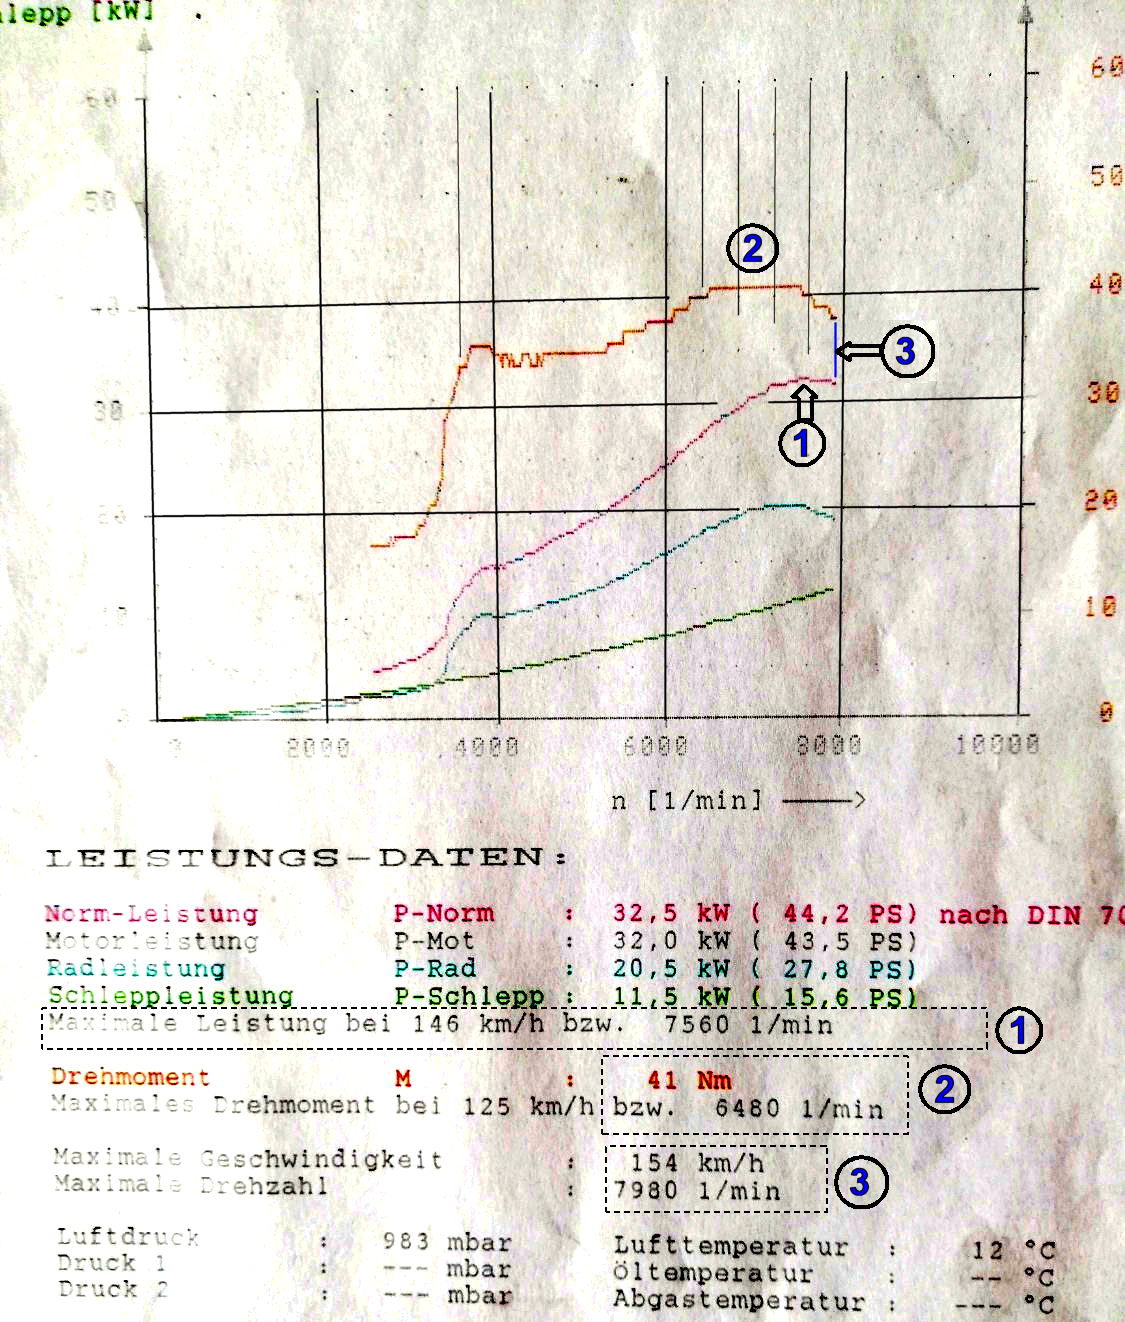 [kW]
60 60
50 50
2
40 40
3
30 30
1
20 20
10 10
0
2000 4000 6000 8000 10000
n [1/min]
LEISTUNGS-DATEN:
Norm-Leistung P-Norm : 32,5 kW ( 44,2 PS) nach DIN
Motorleistung P-Mot : 32,0 kW ( 43,5 PS)
Radleistung P-Rad : 20,5 kW ( 27,8 PS)
Schleppleistung P-Schlepp : 11,5 kW ( 15,6 PS)
Maximale Leistung bei 146 km/h bzw. 7560 1/min 1
Drehmoment M : 41 Nm 2
Maximales Drehmoment bei 125 km/h bzw. 6480 1/min
Maximale Geschwindigkeit : 154 km/h 3
Maximale Drehzahl : 7980 1/min
Luftdruck : 983 mbar Lufttemperatur : 12 °C
Druck 1 : --- mbar Öltemperatur : -- °C
Druck 2 : --- mbar Abgastemperatur : --- °C